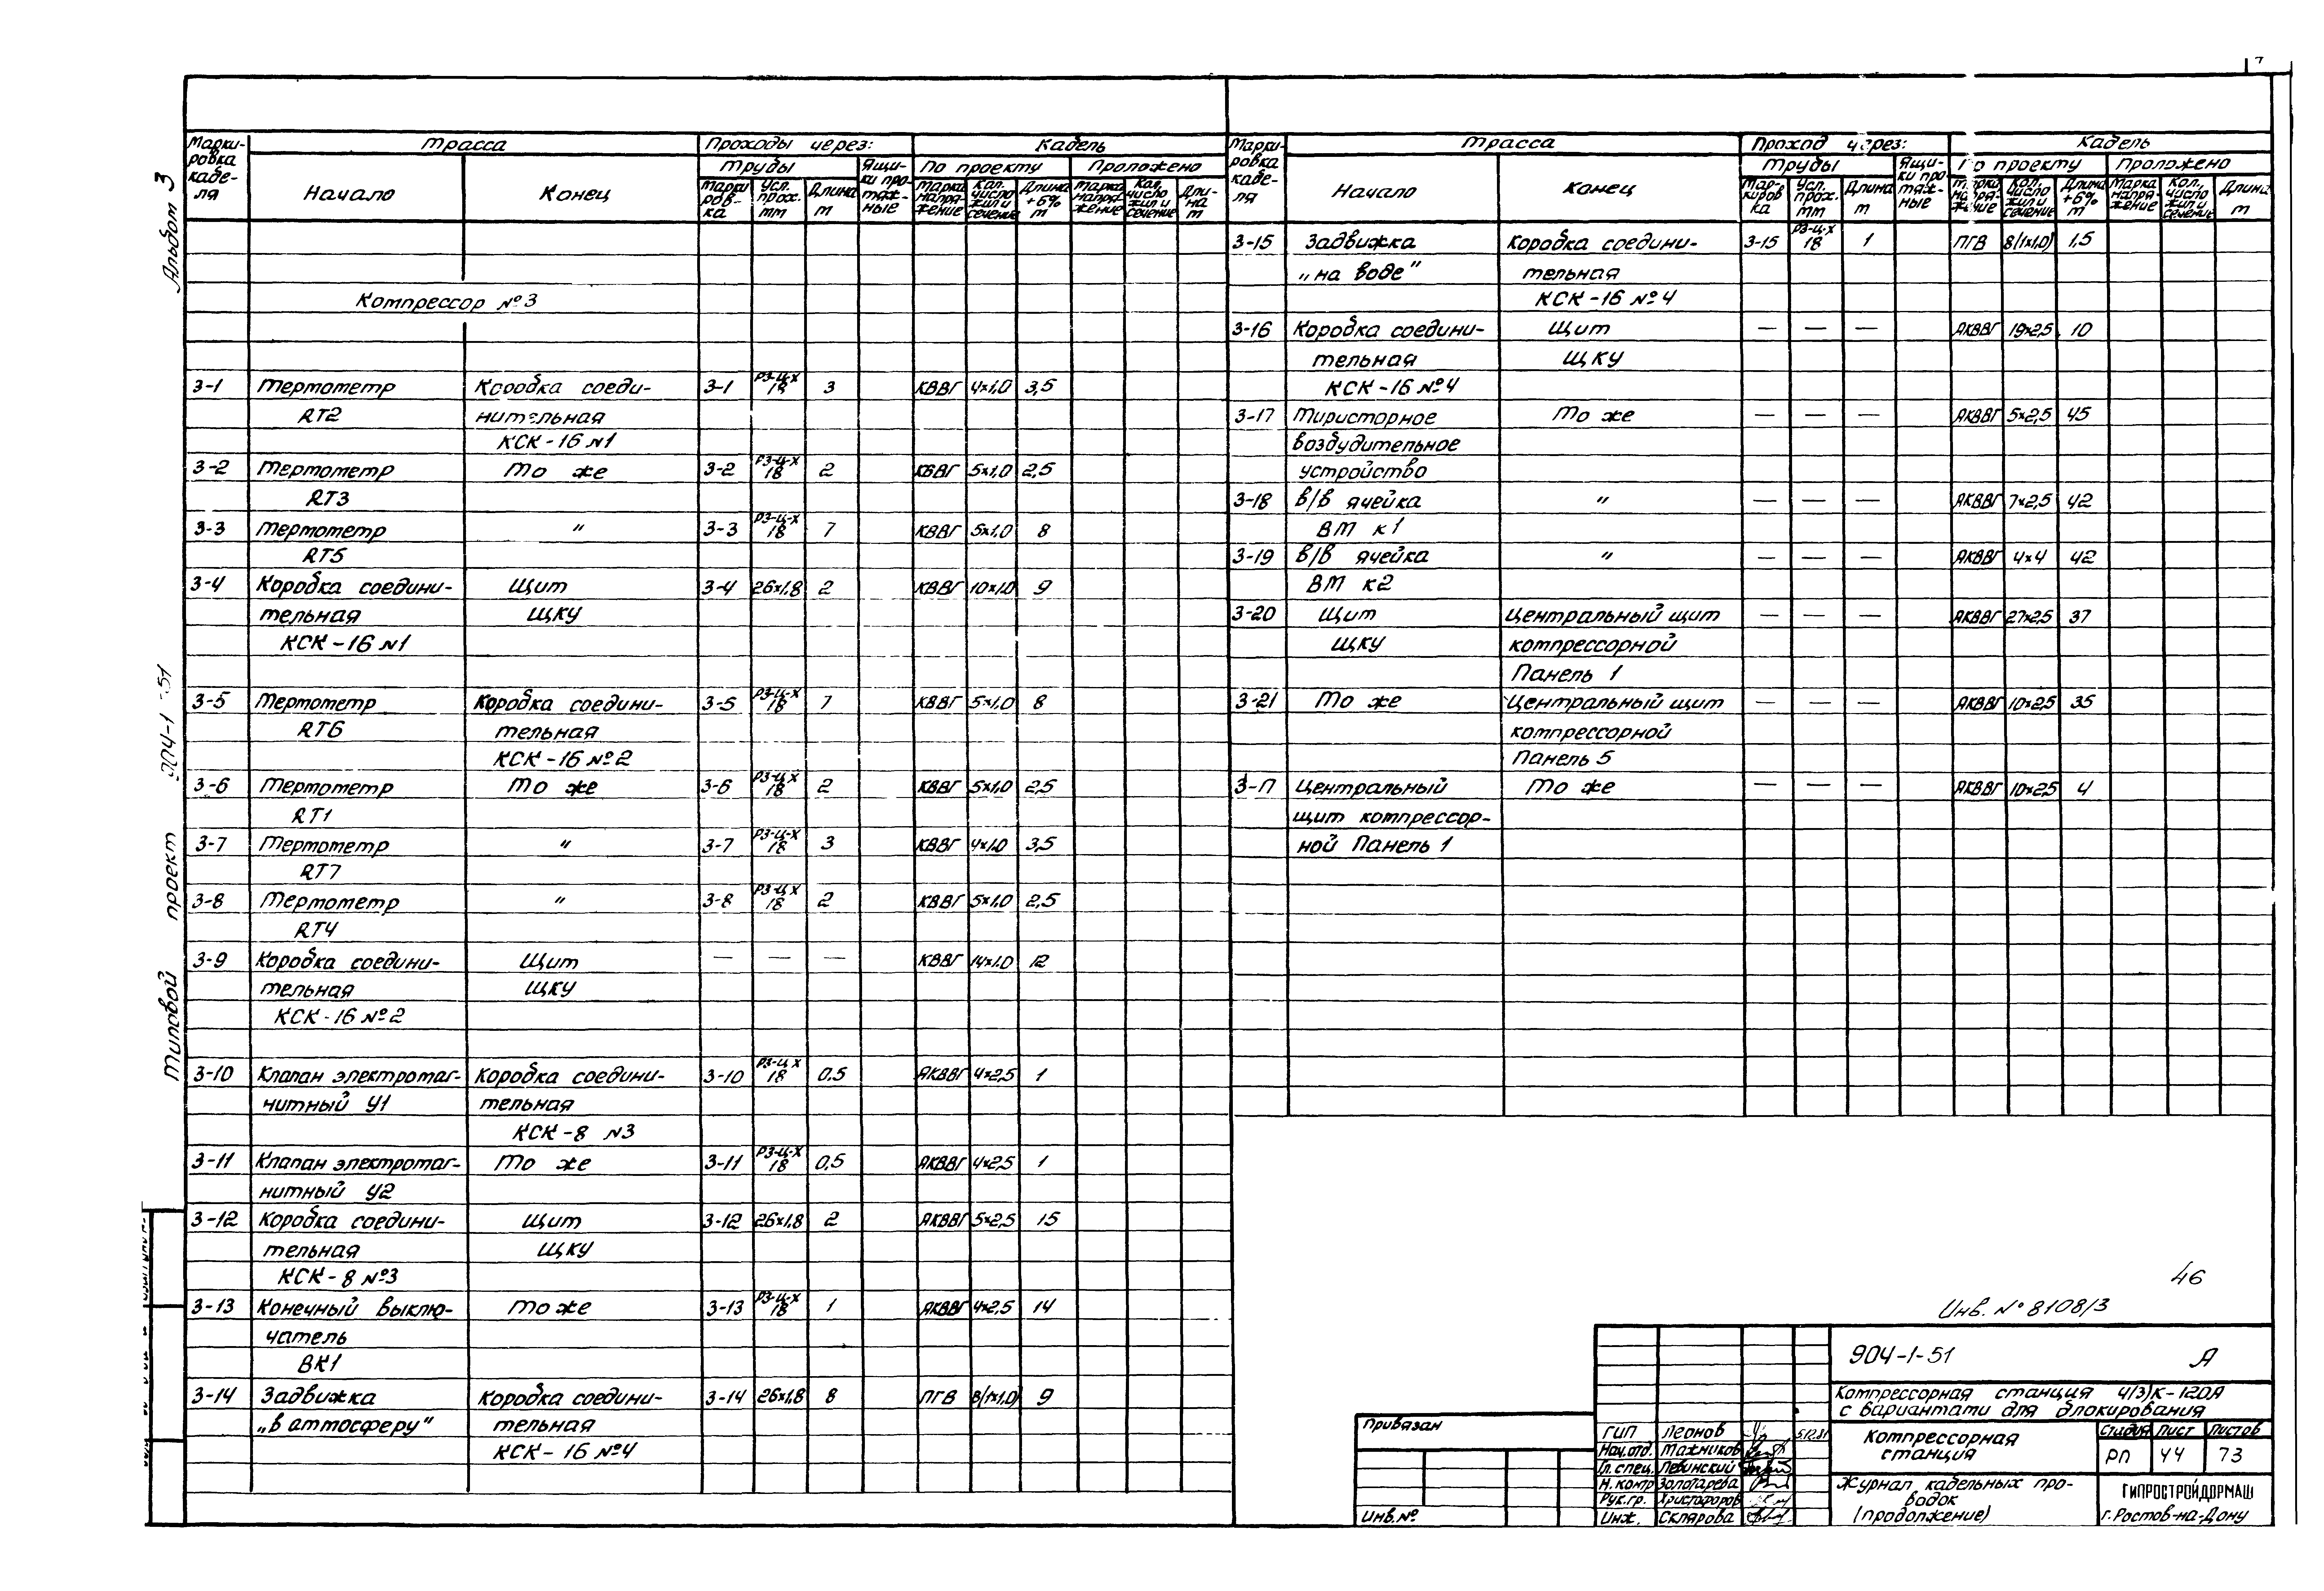 Альбом 3
Типовой проект 904-1-51
Марки-ровка кабе-ля | Трасса | Проходы через: | Кабель
Трубы | Ящи-ки про-тяж-ные | По проекту | Проложено
Начало | Конец | Марки ров-ка | Усл. прох. мм | Длина м | Марка напря-жение | Кол. число жил и сечение | Длина +6% м | Марка напря-жение | Кол. число жил и сечение | Дли-на м
Компрессор №3
3-1 Термометр Коробка соеди- 3-1 РЗ-Ц-Х 18 3 КВВГ 4х1,0 3,5
RT2 нительная
КСК-16 №1
3-2 Термометр То же 3-2 РЗ-Ц-Х 18 2 КВВГ 5х1,0 2,5
RT3
3-3 Термометр " 3-3 РЗ-Ц-Х 18 7 КВВГ 5х1,0 8
RT5
3-4 Коробка соедини- Щит 3-4 26х1,8 2 КВВГ 10х1,0 9
тельная ЩКУ
КСК-16 №1
3-5 Термометр Коробка соедини- 3-5 РЗ-Ц-Х 18 7 КВВГ 5х1,0 8
RT6 тельная
КСК-16 №2
3-6 Термометр То же 3-6 РЗ-Ц-Х 18 2 КВВГ 5х1,0 2,5
RT1
3-7 Термометр " 3-7 РЗ-Ц-Х 18 3 КВВГ 4х1,0 3,5
RT7
3-8 Термометр " 3-8 РЗ-Ц-Х 18 2 КВВГ 5х1,0 2,5
RT4
3-9 Коробка соедини- Щит — — — КВВГ 14х1,0 12
тельная ЩКУ
КСК-16 №2
3-10 Клапан электромаг- Коробка соедини- 3-10 РЗ-Ц-Х 18 0,5 АКВВГ 4х2,5 1
нитный У1 тельная
КСК-8 №3
3-11 Клапан электромаг- То же 3-11 РЗ-Ц-Х 18 0,5 АКВВГ 4х2,5 1
нитный У2
3-12 Коробка соедини- Щит 3-12 26х1,8 2 АКВВГ 5х2,5 15
тельная ЩКУ
КСК-8 №3
3-13 Конечный выклю- То же 3-13 РЗ-Ц-Х 18 1 АКВВГ 4х2,5 14
чатель
ВК1
3-14 Задвижка Коробка соедини- 3-14 26х1,8 8 ПГВ 8(1х1,0) 9
„в атмосферу" тельная
КСК-16 №4
Марки-ровка кабе-ля | Трасса | Проход через: | Кабель
Трубы | Ящи-ки про-тяж-ные | По проекту | Проложено
Начало | Конец | Мар-киров ка | Усл. прох. мм | Длина м | Марка напря-жение | Кол. число жил и сечение | Длина +6% м | Марка напря-жение | Кол. число жил и сечение | Длина м
3-15 Задвижка Коробка соедини- 3-15 РЗ-Ц-Х 18 1 ПГВ 8(1х1,0) 1,5
„на воде" тельная
КСК-16 №4
3-16 Коробка соедини- Щит — — — АКВВГ 19х2,5 10
тельная ЩКУ
КСК-16 №4
3-17 Тиристорное То же — — — АКВВГ 5х2,5 45
возбудительное
устройство
3-18 в/в ячейка " — — — АКВВГ 7х2,5 42
ВМ к1
3-19 в/в ячейка " — — — АКВВГ 4х4 42
ВМ к2
3-20 Щит Центральный щит — — — АКВВГ 27х2,5 37
ЩКУ компрессорной
Панель 1
3-21 То же Центральный щит — — — АКВВГ 10х2,5 35
компрессорной
Панель 5
3-П Центральный То же — — — АКВВГ 10х2,5 4
щит компрессор-
ной Панель 1
46
Инв. № 8108/3
904-1-51 А
Компрессорная станция 4(3)К-120А
с вариантами для блокирования
Компрессорная
станция
Стадия Лист Листов
РП 44 73
Журнал кабельных про-
водок
(продолжение)
ГИПРОСТРОЙДОРМАШ
г. Ростов-на-Дону
ГИП Леонов
Нач.отд. Мажников
Гл. спец. Левинский
Н. контр Золотарева
Рук.гр. Христофоров
Инж. Склярова
Привязан
Инв.№